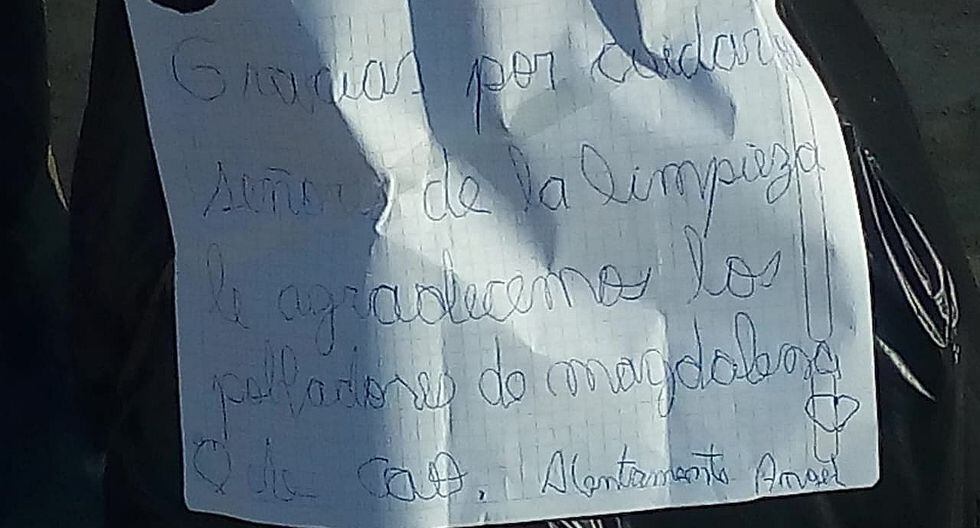 Gracias por cuidarno
señores de la limpieza
le agradecemos los
polladores de magdalena
de cao. Atentamente Angel